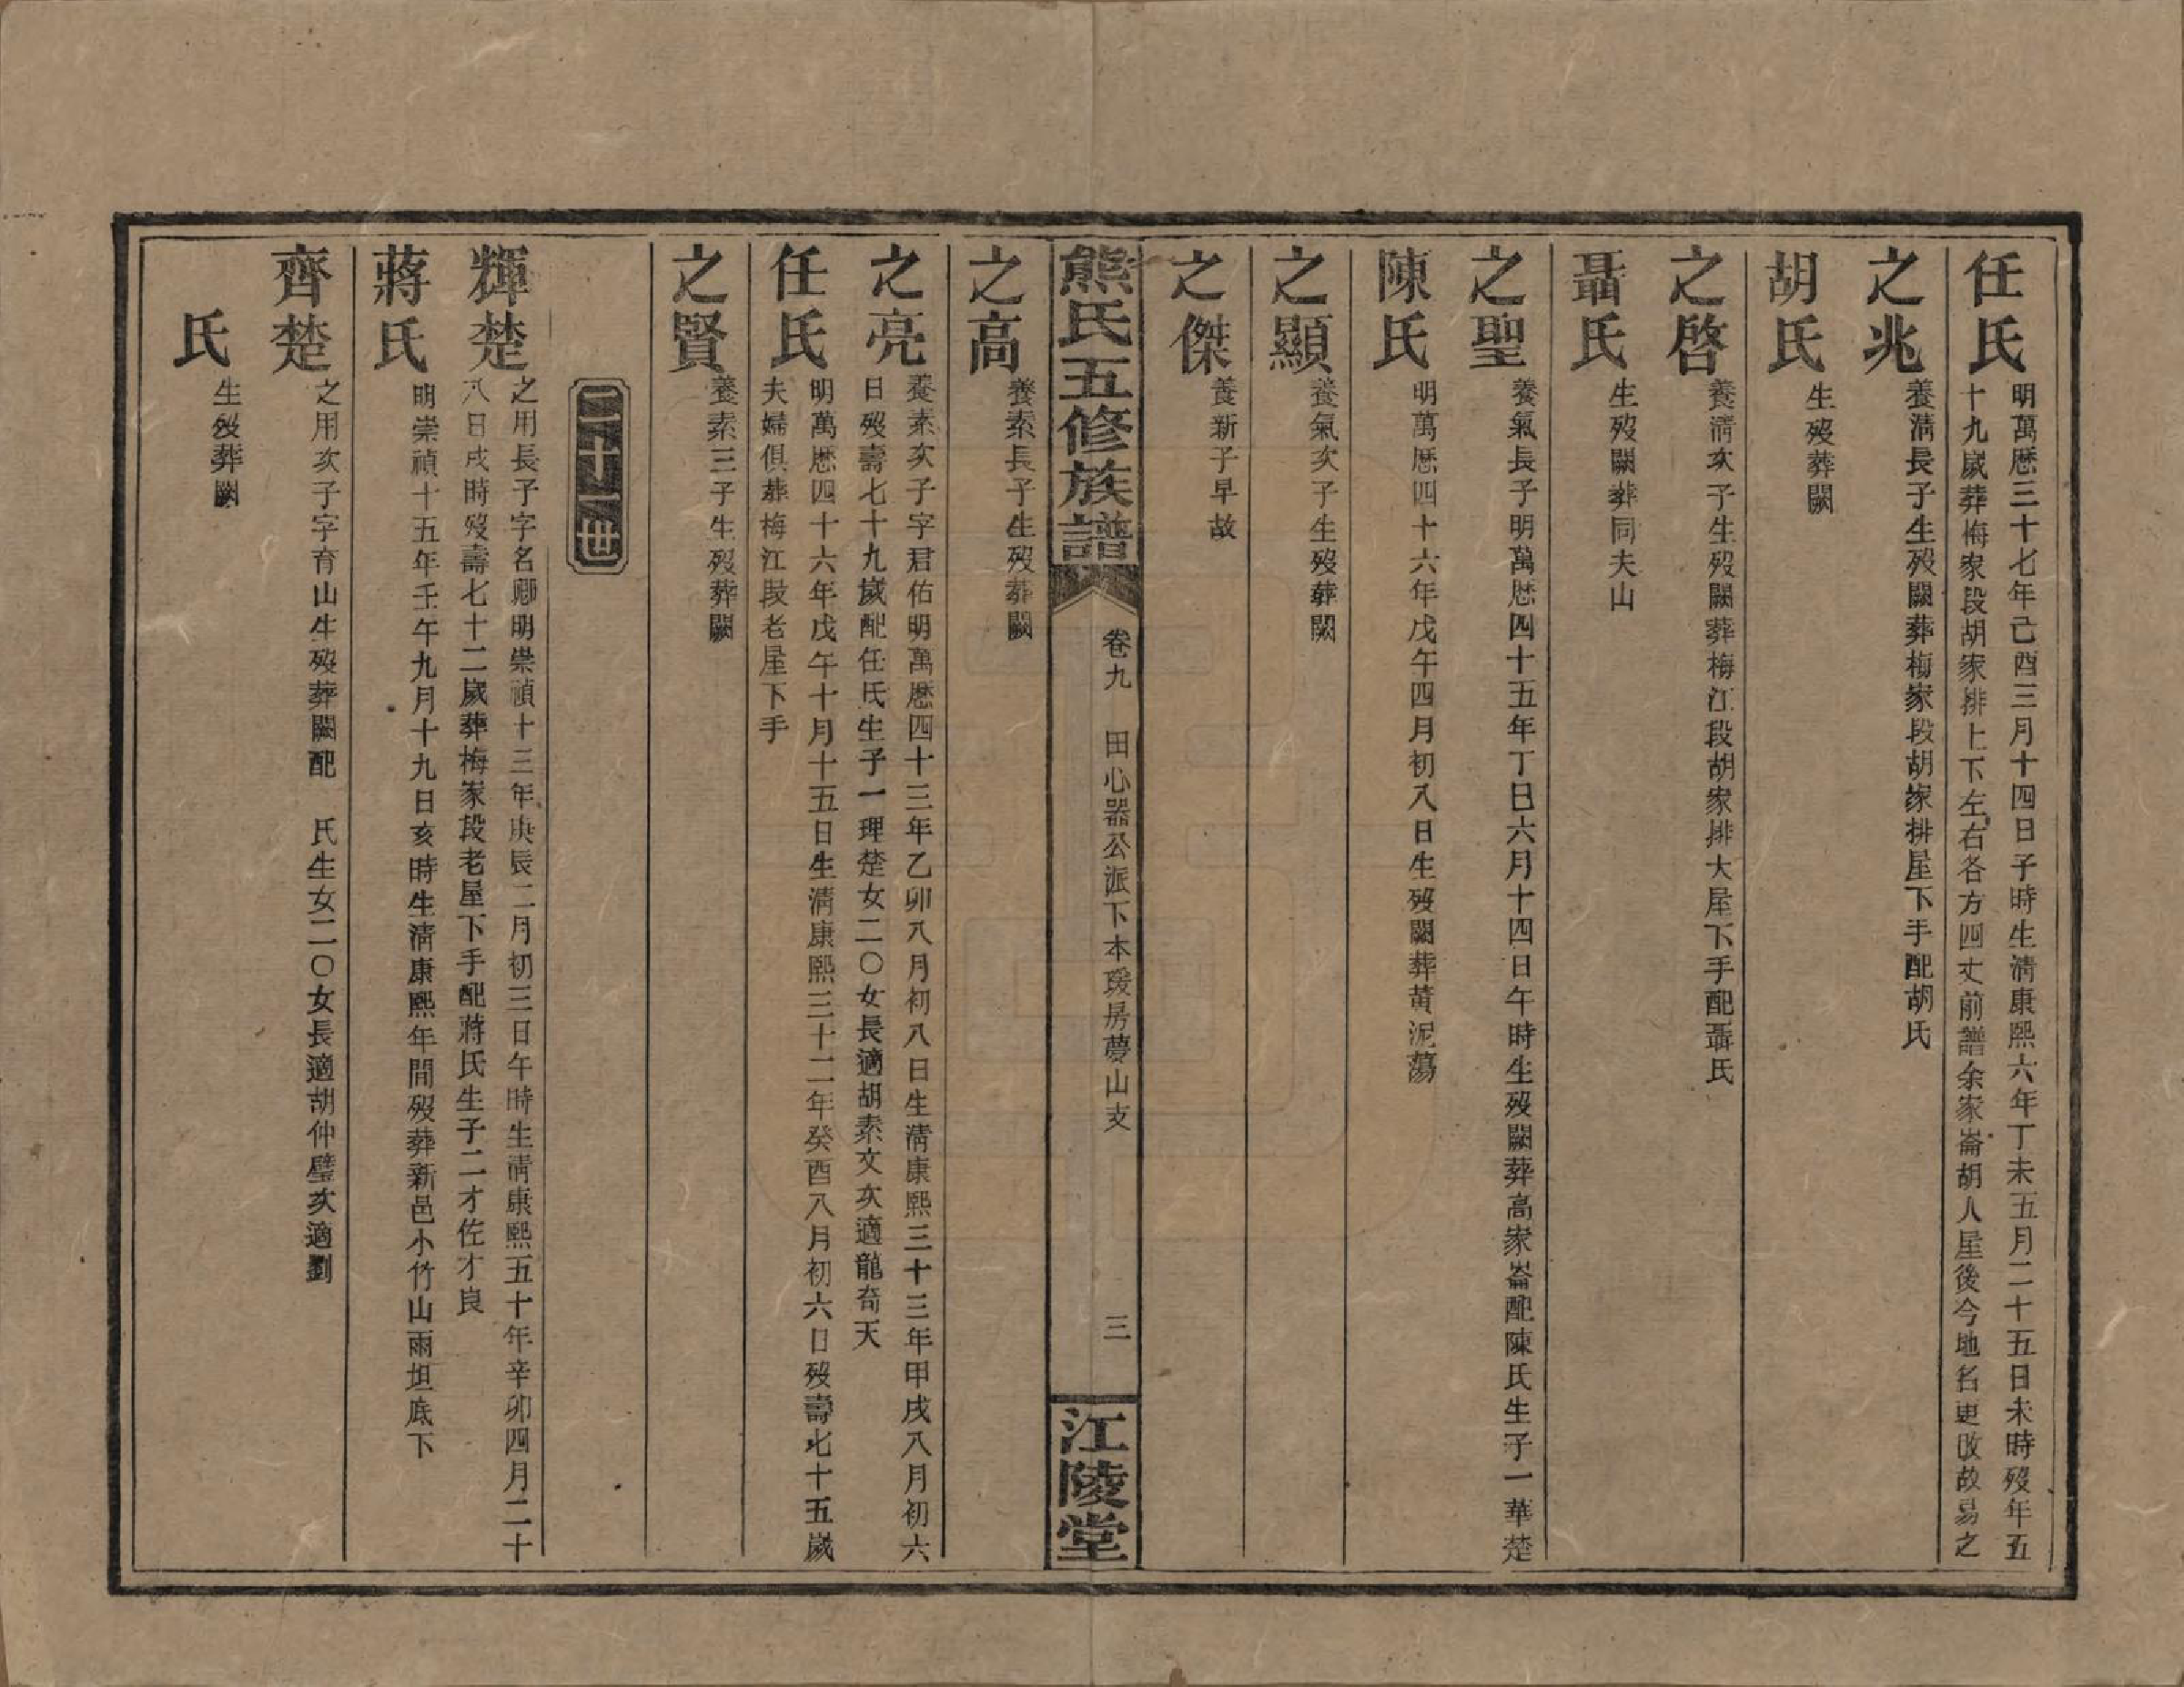 任氏
明萬厯三十七年己酉三月十四日子時生淸康熙六年丁未五月二十五日未時歿年五
十九歲葬梅家段胡家排上下左右各方四丈前譜余家崙胡人屋後今地名更改故易之
之兆
養淸長子生歿闕葬梅家段胡家排屋下手配胡氏
胡氏
生歿葬闕
之啓
養淸次子生歿闕葬梅江段胡家排大屋下手配聶氏
聶氏
生歿闕葬同夫山
之聖
養氣長子明萬厯四十五年丁巳六月十四日午時生歿闕葬高家崙配陳氏生子一華楚
陳氏
明萬厯四十六年戊午四月初八日生歿闕葬黃泥蕩
之顯
養氣次子生歿葬闕
之傑
養新子早故
熊氏五修族譜
卷九 田心器公派下本瑗房夢山支
三
江陵堂
之高
養素長子生歿葬闕
之亮
養素次子字君佑明萬厯四十三年乙卯八月初八日生淸康熙三十三年甲戌八月初六
日歿壽七十九歲配任氏生子一理楚女二〇女長適胡素文次適龍奇天
任氏
明萬厯四十六年戊午十月十五日生淸康熙三十二年癸酉八月初六日歿壽七十五歲
夫婦俱葬梅江段老屋下手
之賢
養素三子生歿葬闕
二十二世
輝楚
之用長子字名卿明崇禎十三年庚辰二月初三日午時生淸康熙五十年辛卯四月二十
八日戌時歿壽七十二歲葬梅家段老屋下手配蔣氏生子二才佐才良
蔣氏
明崇禎十五年壬午九月十九日亥時生淸康熙年間歿葬新邑小竹山雨坦底下
齊楚
之用次子字育山生歿葬闕配 氏生女二〇女長適胡仲璧次適劉
氏
生歿葬闕